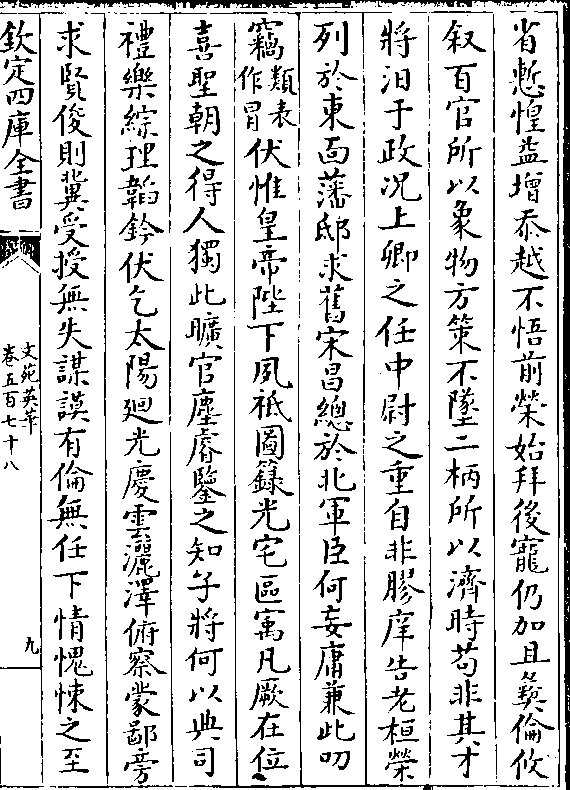 省慙惶益增忝越不悟前榮始拜後寵仍加且彛倫攸
叙百官所以象物方策不墜二柄所以濟時苟非其才
將汨于政况上卿之任中尉之重自非膠庠告老桓榮
列於東面藩邸求舊宋昌總於北軍臣何妄庸兼此叨
竊類表作冒伏惟皇帝陛下夙祗圖籙光宅區寓凡厥在位
喜聖朝之得人獨此曠官塵睿鑒之知乎將何以典司
禮樂綜理韜鈐伏乞太陽廻光慶雲灑澤俯察蒙鄙旁
求賢俊則冀受授無失謀謨有倫無任下情愧悚之至
欽定四庫全書
文苑英華
卷五百七十八
九